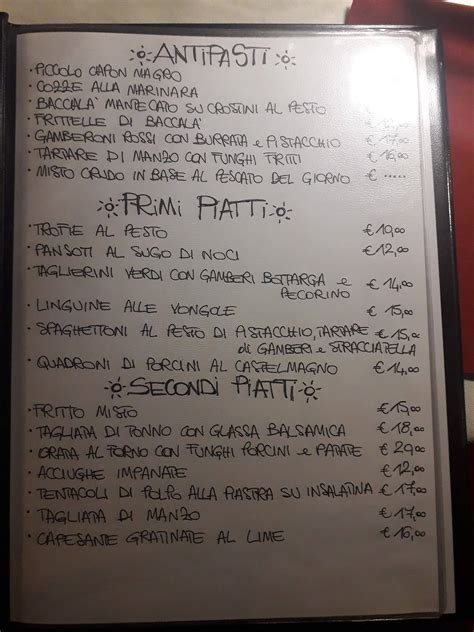 ANTIPASTI
· PICCOLO CAPON MAGRO
· COZZE ALLA MARINARA
· BACCALA' MANTECATO SU CROSTINI AL PESTO
· FRITTELLE DI BACCALA'
· GAMBERONI ROSSI CON BURRATA e PISTACCHIO € 17,00
· TARTARE DI MANZO CON FUNGHI FRITTI € 16,00
· MISTO CRUDO IN BASE AL PESCATO DEL GIORNO € .....
PRIMI PIATTI
· TROFIE AL PESTO € 10,00
· PANSOTI AL SUGO DI NOCI € 12,00
· TAGLIERINI VERDI CON GAMBERI BOTTARGA e PECORINO € 14,00
· LINGUINE ALLE VONGOLE € 15,00
· SPAGHETTONI AL PESTO DI PISTACCHIO, TARTARE € 15,00
di GAMBERI e STRACCIATELLA
· QUADRONI DI PORCINI AL CASTELMAGNO € 14,00
SECONDI PIATTI
· FRITTO MISTO € 15,00
· TAGLIATA DI TONNO CON GLASSA BALSAMICA € 18,00
· ORATA AL FORNO CON FUNGHI PORCINI e PATATE €
· ACCIUGHE IMPANATE € 12,00
· TENTACOLI DI POLPO ALLA PIASTRA SU INSALATINA € 17,00
· TAGLIATA DI MANZO € 17,00
· CAPESANTE GRATINATE AL LIME € 16,00